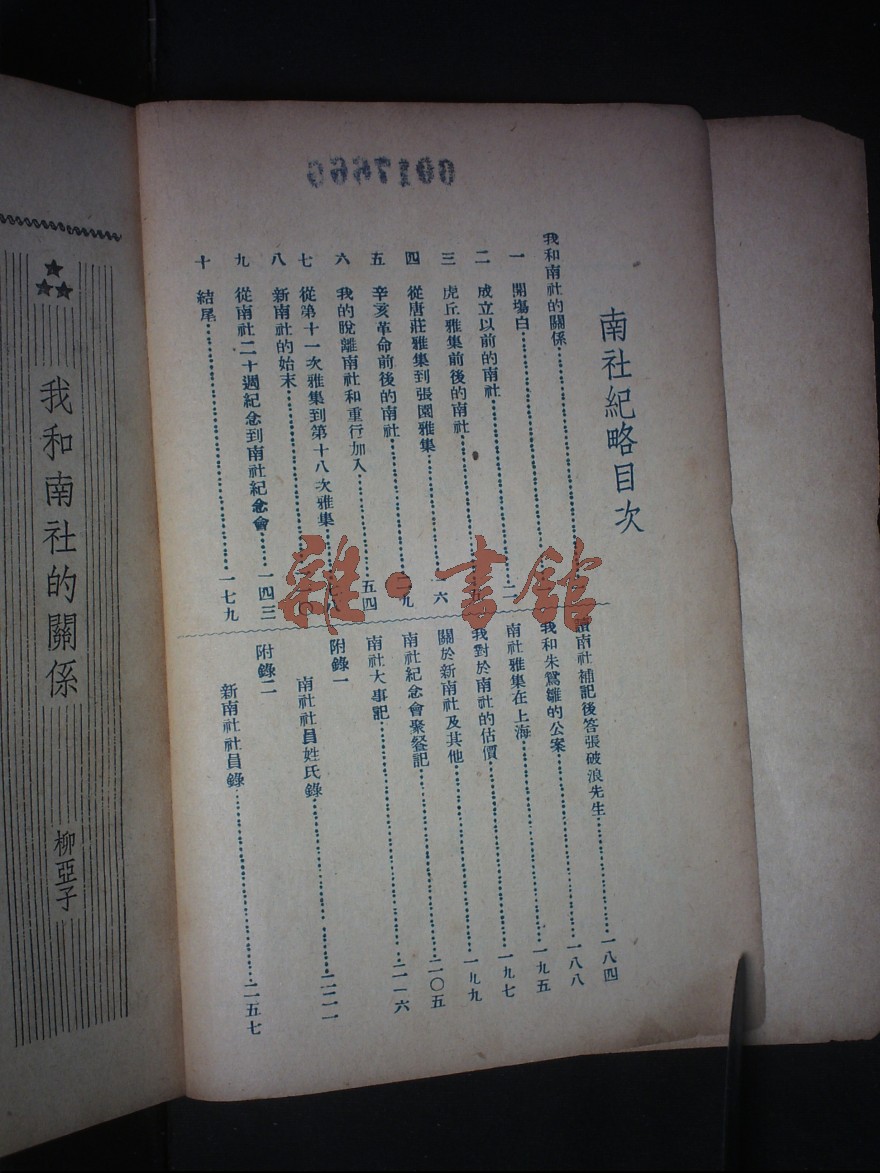 南社紀略目次
我和南社的關係
一 開塲白
二 成立以前的南社 二
三 虎丘雅集前後的南社
四 從唐莊雅集到張園雅集 一六
五 辛亥革命前後的南社
六 我的脫離南社和重行加入 五四
七 從第十一次雅集到第十八次雅集
八 新南社的始末
九 從南社二十週紀念到南社紀念會 一四三
十 結尾 一七九
讀南社補記後答張破浪先生 一八四
我和朱鴛雛的公案 一八八
南社雅集在上海 一九五
我對於南社的估價 一九七
關於新南社及其他 一九九
南社紀念會聚餐記 二〇五
南社大事記 二一六
附錄一
南社社員姓氏錄 二二一
附錄二
新南社社員錄 二五七
我和南社的關係
柳亞子
雜·書館